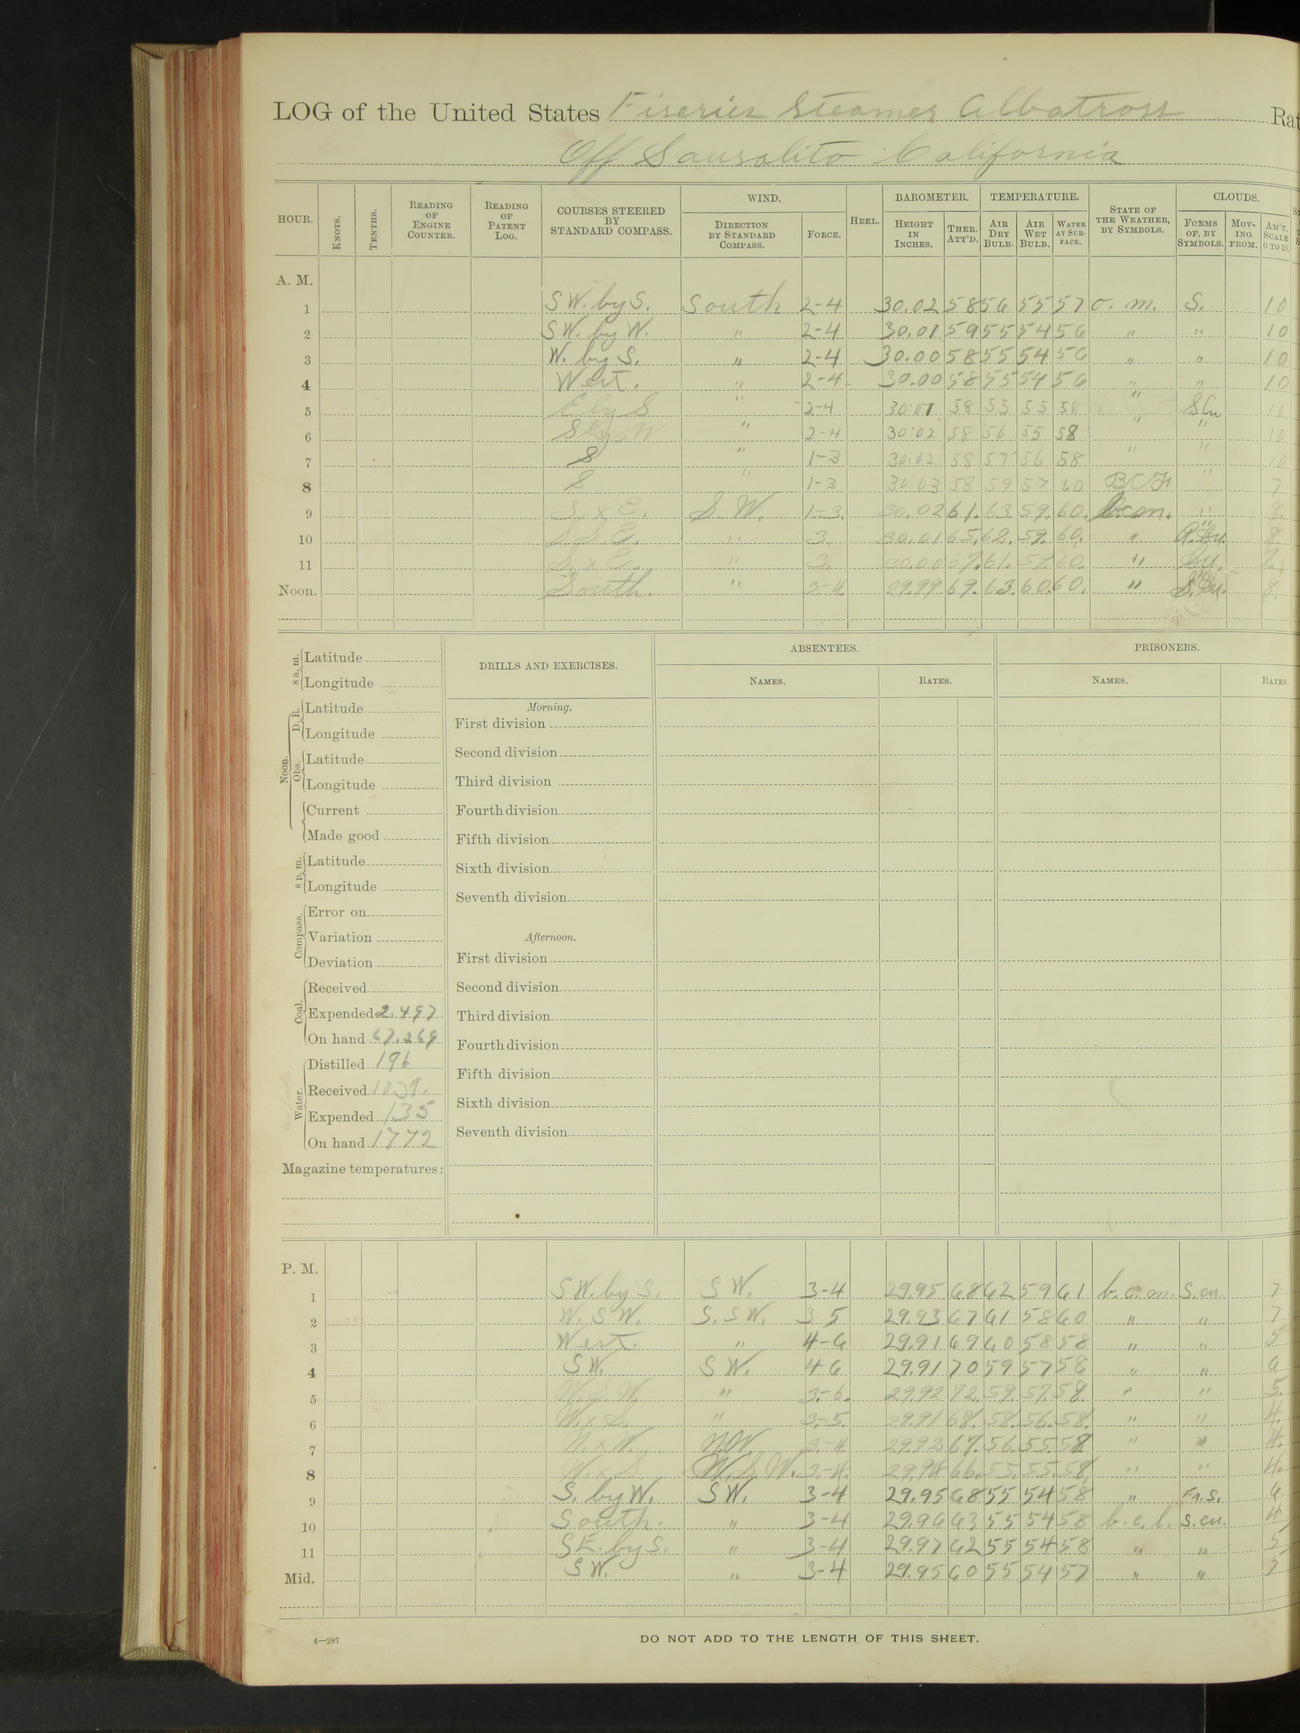 LOG of the United States Fiseries Steamer Albatross Rat
Off Sausalito California
HOUR. KNOTS. TENTHS. READING OF ENGINE COUNTER. READING OF PATENT LOG. COURSES STEERED BY STANDARD COMPASS. WIND. DIRECTION BY STANDARD COMPASS. FORCE. HEEL. BAROMETER. HEIGHT IN INCHES. THER. ATT'D. TEMPERATURE. AIR DRY BULB. AIR WET BULB. WATER AT SURFACE. STATE OF THE WEATHER, BY SYMBOLS. CLOUDS. FORMS OF, BY SYMBOLS. MOVING FROM. AM'T, SCALE 0 TO 10.
A. M.
1 SW. by S. South 2-4 30.02 58 56 55 57 o. m. S. 10
2 SW. by W. " 2-4 30.01 59 55 54 56 " " 10
3 W. by S. " 2-4 30.00 58 55 54 56 " " 10
4 West. " 2-4 30.00 58 55 54 56 " " 10
5 E by S " 2-4 30.01 58 55 55 58 " S Cu 10
6 S by W " 2-4 30.02 58 56 55 58 " " 10
7 S " 1-3 30.02 58 57 56 58 " " 10
8 S " 1-3 30.03 58 59 57 60 " 7
9 S. x E. S. W. 1-3. 30.02 61. 63. 59. 60. b.c.m. " 8.
10 S. S. E. " 3. 30.01 65. 62. 59. 60. " 8.
11 S. x E. " 3. 30.00 67. 61. 59. 60. " Cu.
Noon. South. " 3-4 29.99 69. 63. 60. 60. " S. Cu. 8.
8 a. m. Latitude
Longitude
Noon. D. R. Latitude
Longitude
Obs. Latitude
Longitude
Current
Made good
8 p. m. Latitude
Longitude
Compass. Error on
Variation
Deviation
Coal. Received
Expended 2.497
On hand 67.269
Water. Distilled 196
Received 1039.
Expended 135
On hand 1772
Magazine temperatures:
DRILLS AND EXERCISES.
Morning.
First division
Second division
Third division
Fourth division
Fifth division
Sixth division
Seventh division
Afternoon.
First division
Second division
Third division
Fourth division
Fifth division
Sixth division
Seventh division
ABSENTEES.
NAMES. RATES.
PRISONERS.
NAMES. RATES.
P. M.
1 SW. by S. SW. 3-4 29.95 68 62 59 61 b.c.m. S. cu. 7
2 W. SW. S. SW. 3-5 29.93 67 61 58 60 " " 7
3 West. " 4-6 29.91 69 60 58 58 " " 5
4 SW. SW. 4-6 29.91 70 59 57 58 " " 6
5 W. S. W. " 3-6. 29.92 72. 59. 57. 58. " " 5.
6 W. x S. " 3-5. 29.91 68. 58. 56. 58. " " 4.
7 W. x W. 3-4 29.92 67. 56. 55. 58. " " 4.
8 W. x S. W. S. W. 3-4. 29.94 66. 55. 55. 58. " " 4.
9 S. by W. SW. 3-4 29.95 68 55 54 58 " Fr. S. 6
10 South. " 3-4 29.96 63 55 54 58 b.c.l. S. cu. 4
11 SE. by S. " 3-4 29.97 62 55 54 58 " " 5
Mid. SW. " 3-4 29.95 60 55 54 57 " " 5
4—287
DO NOT ADD TO THE LENGTH OF THIS SHEET.